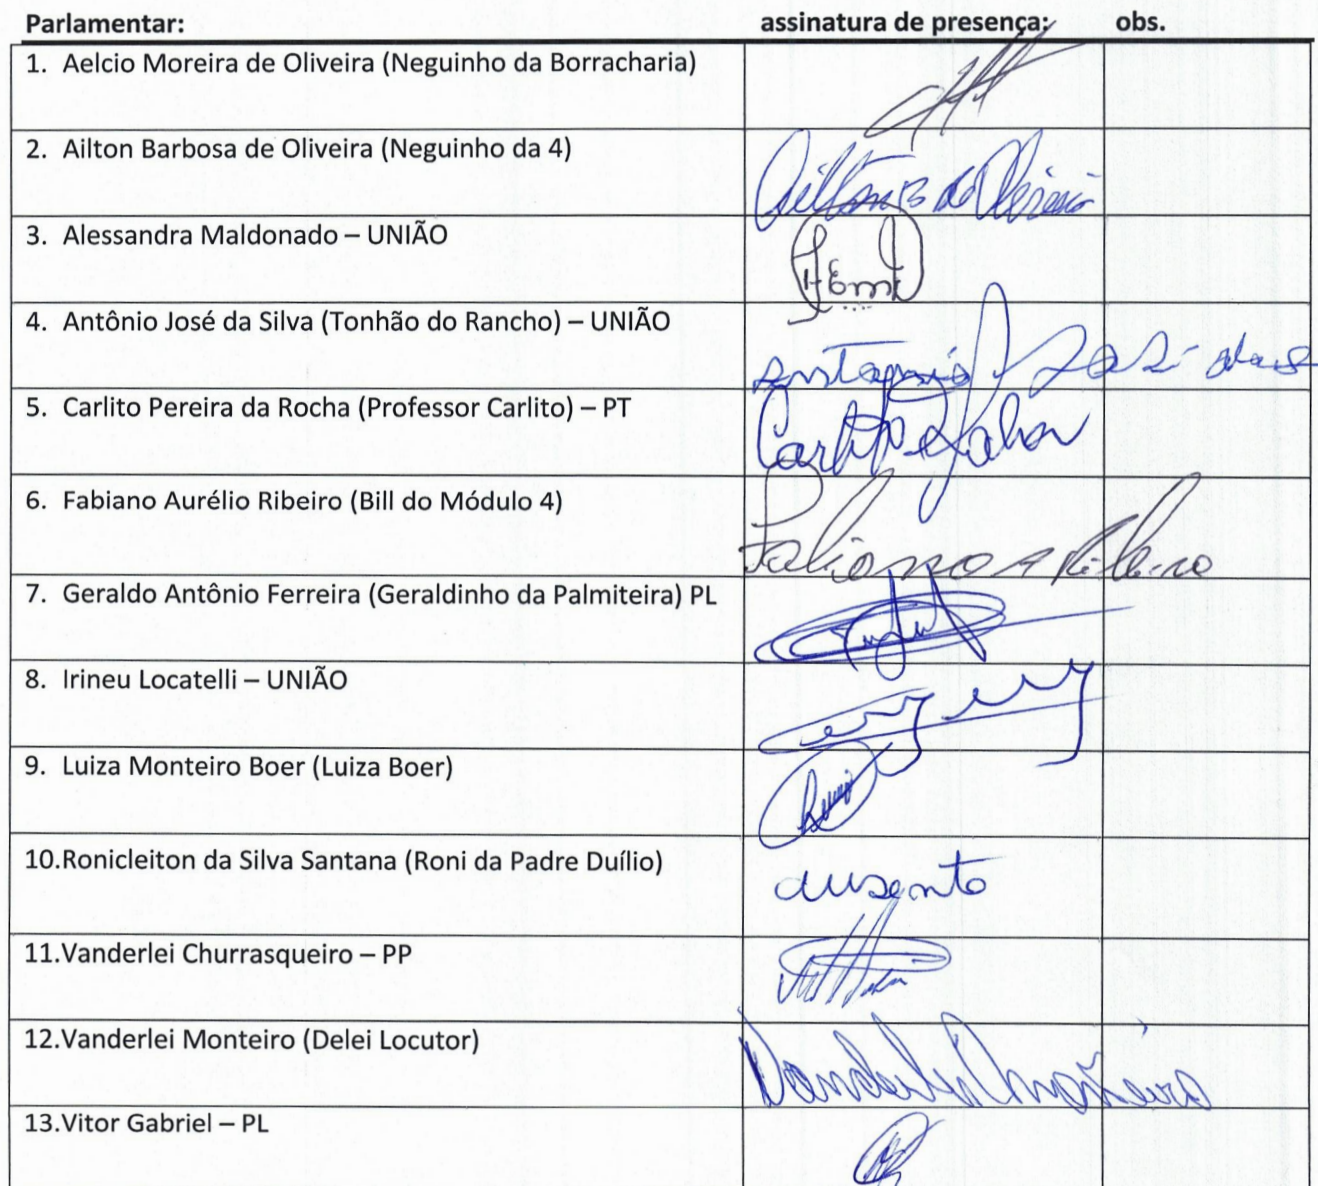 Parlamentar: assinatura de presença: obs.
1. Aelcio Moreira de Oliveira (Neguinho da Borracharia)
2. Ailton Barbosa de Oliveira (Neguinho da 4)
Ailton B de Oliveira
3. Alessandra Maldonado – UNIÃO
4. Antônio José da Silva (Tonhão do Rancho) – UNIÃO
5. Carlito Pereira da Rocha (Professor Carlito) – PT
Carlito
6. Fabiano Aurélio Ribeiro (Bill do Módulo 4)
Fabiano A Ribeiro
7. Geraldo Antônio Ferreira (Geraldinho da Palmiteira) PL
8. Irineu Locatelli – UNIÃO
9. Luiza Monteiro Boer (Luiza Boer)
10.Ronicleiton da Silva Santana (Roni da Padre Duílio)
ausente
11.Vanderlei Churrasqueiro – PP
12.Vanderlei Monteiro (Delei Locutor)
13.Vitor Gabriel – PL